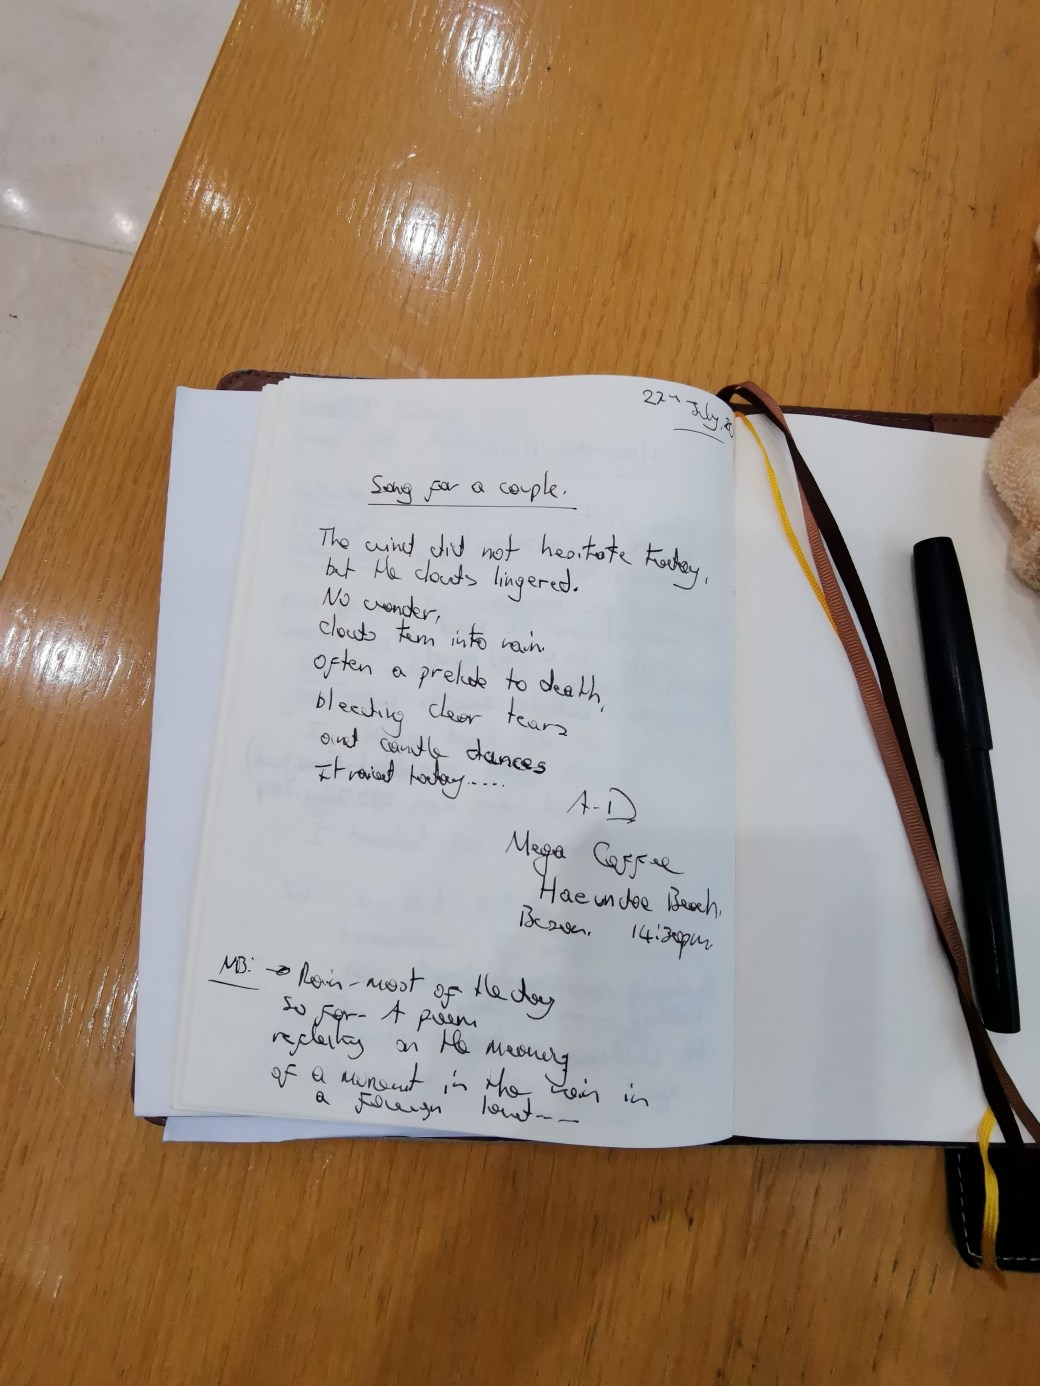 27th July, 20
Song for a couple.
The wind did not hesitate today,
but the clouds lingered.
No wonder,
clouds turn into rain.
often a prelude to death,
bleeding clear tears
and candle dances
It rained today.....
A-D
Mega Coffee
Haeundae Beach,
Busan. 14:30pm
NB: → Rain - most of the day
so far - A poem
reflecting on the meaning
of a moment in the rain in
a foreign land---